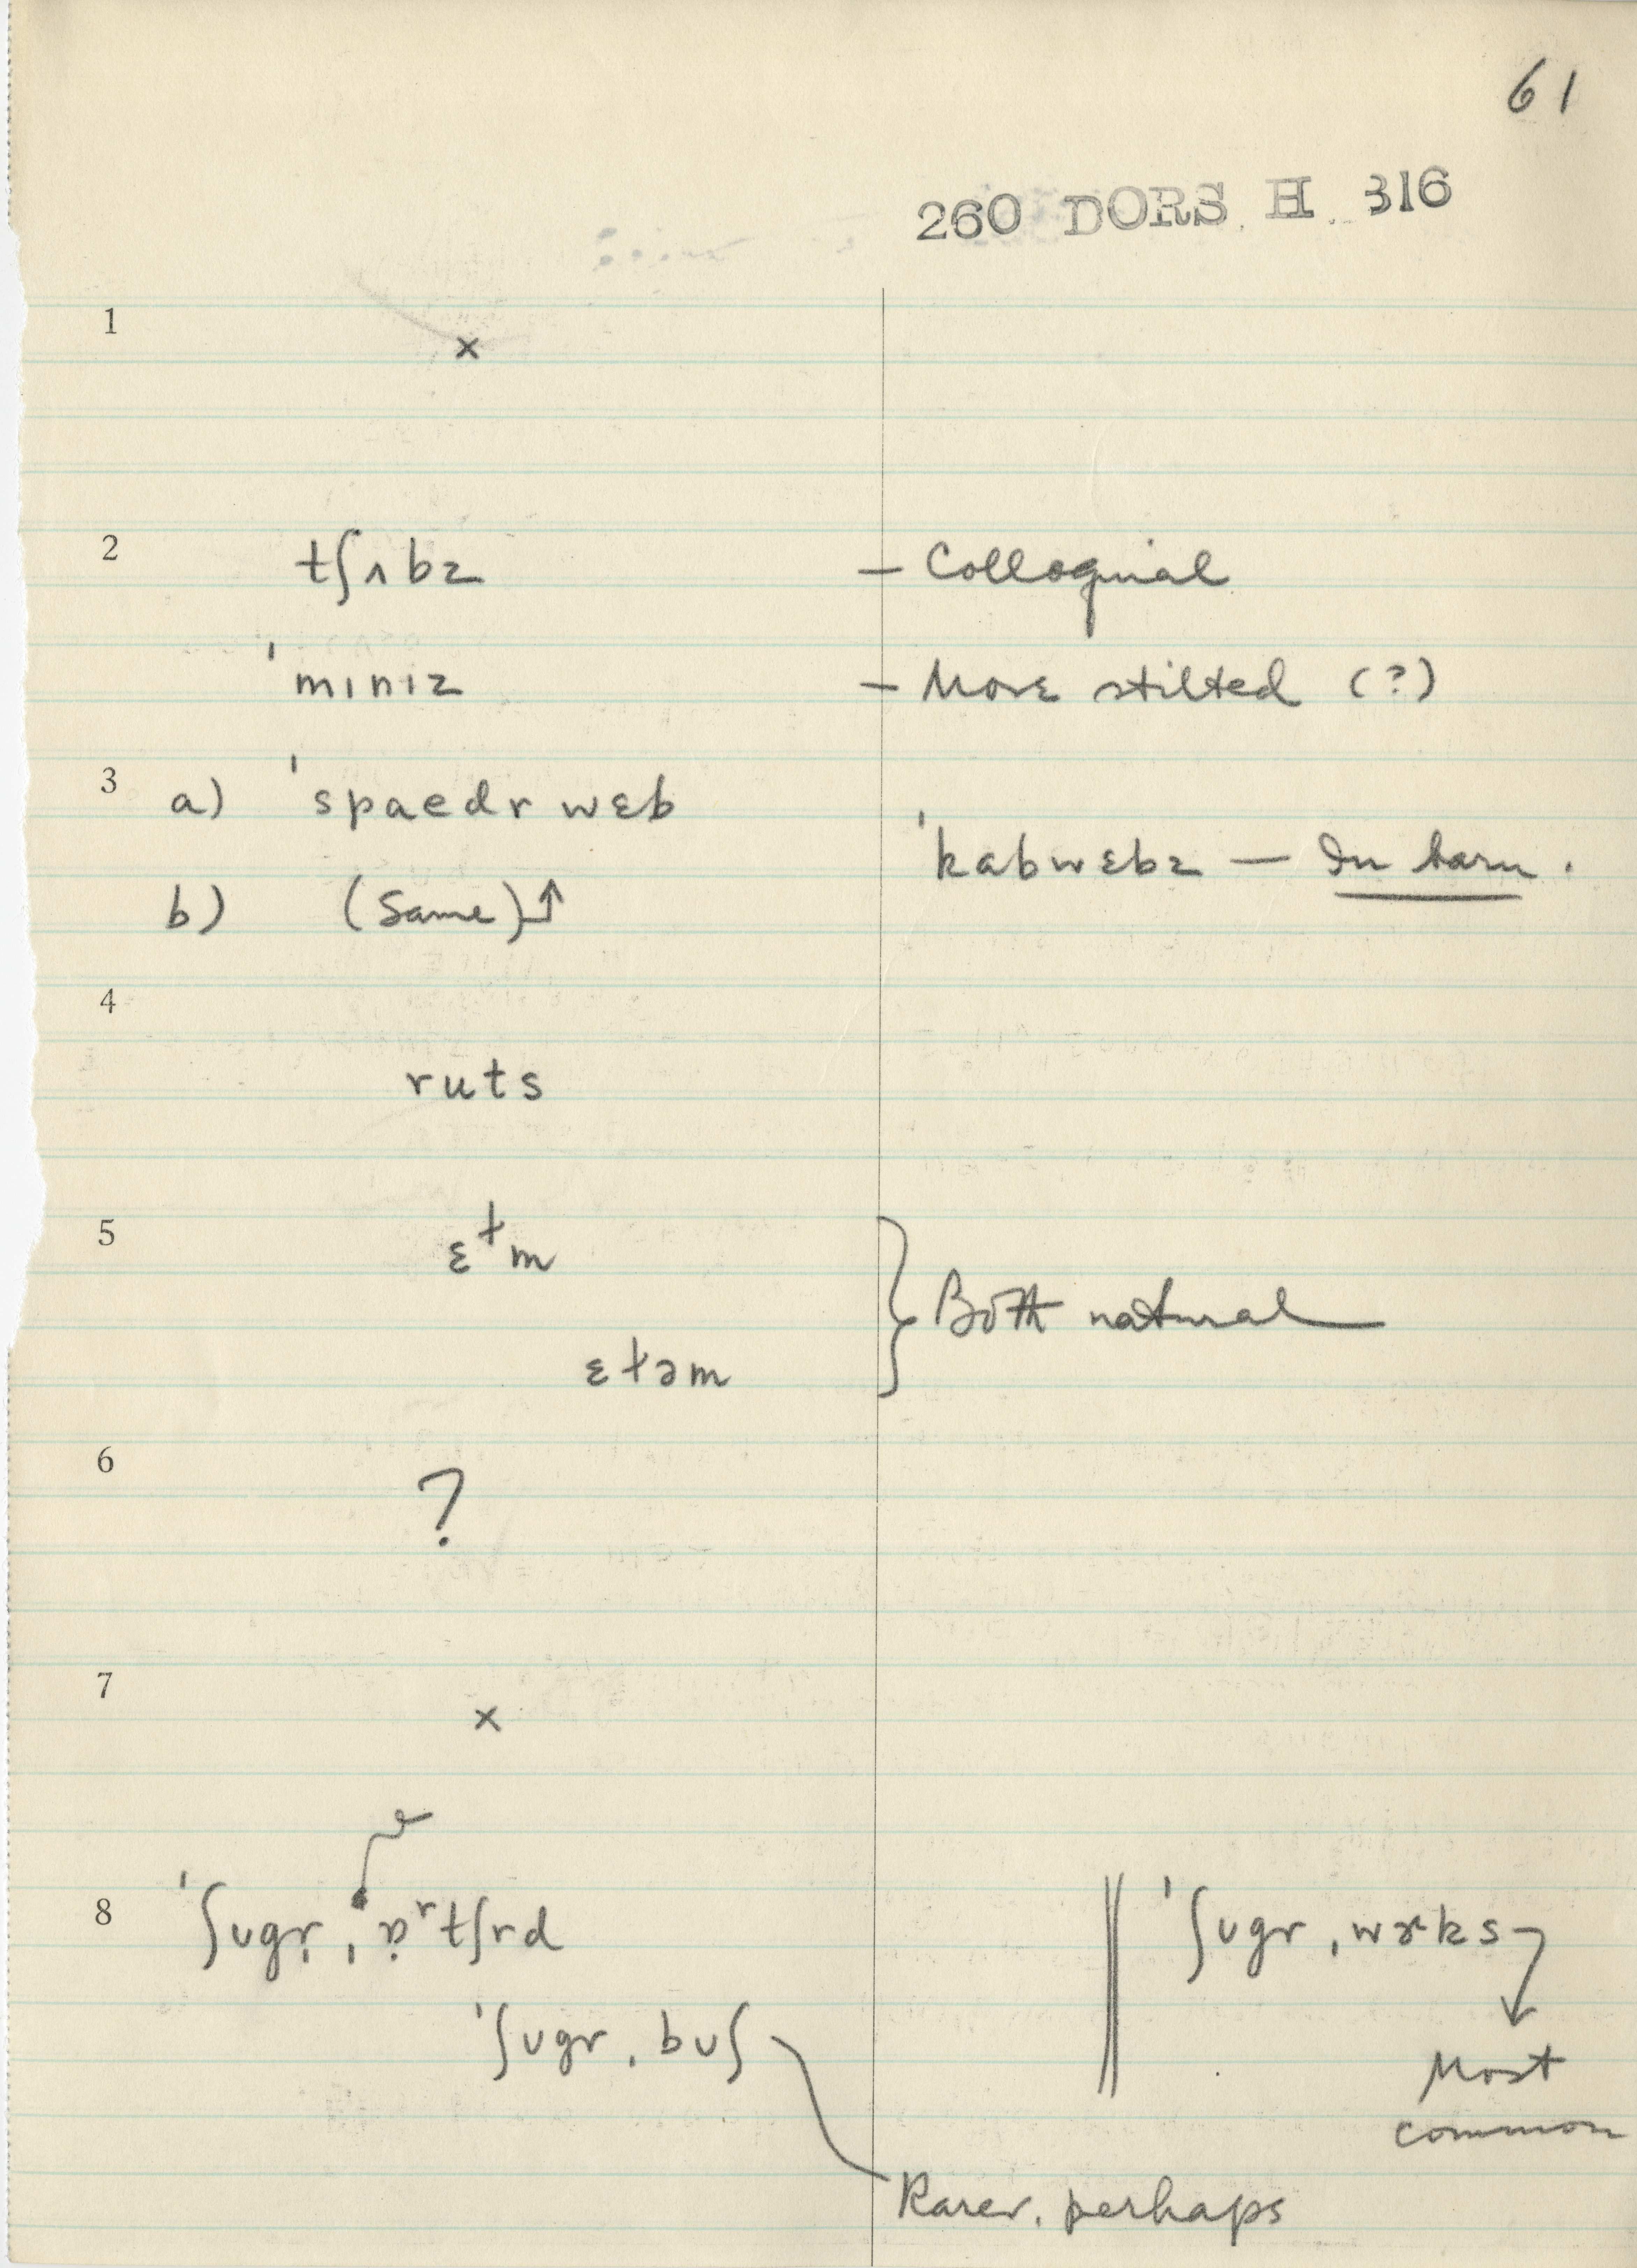 61
260 DORS. H. 316
1 ×
2 tʃʌbz — Colloquial
ˈmɪnɪz — More stilted (?)
3 a) ˈspaedr wɛb
ˈkabwɛbz — In barn.
b) (Same) ↑
4
ruts
5 ɛᵗm
ɛtəm
} Both natural
6 ?
7 ×
8 ˈʃugr̩ ˌɒʳtʃrd ‖ ˈʃʊgr ˌwɝks
ˈʃʊgr ˌbʊʃ
Most
common
Rarer, perhaps